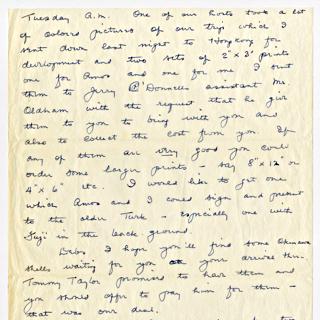 Tuesday A.M. One of our hosts took a lot
of colored pictures of our trip which I
sent down last night to Hongkong for
development and two sets of 2" x 3" prints
one for Amos and one for me I sent
them to Jerry O'Donnells assistant Mr.
Oldham with the request that he give
them to you to bring with you and
also to collect the cost from you. If
any of them are very good you could
order some larger prints - say 8" x 12" or
4" x 6" etc. I would like to get one
which Amos and I could sign and present
to the older Turk - especially one with
Fuji in the back ground.
I hope you'll find some Okinawa
shells waiting for you on your arrival this.
Tommy Taylor promised to have them and
you should offer to pay him for them -
that was our deal.